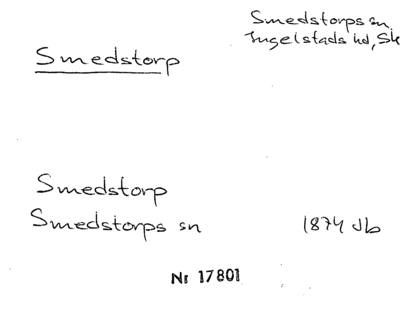 Smedstorps sn
Ingelstads hd, Sk
Smedstorp
Smedstorp
Smedstorps sn 1874 Jb
Nr 17801